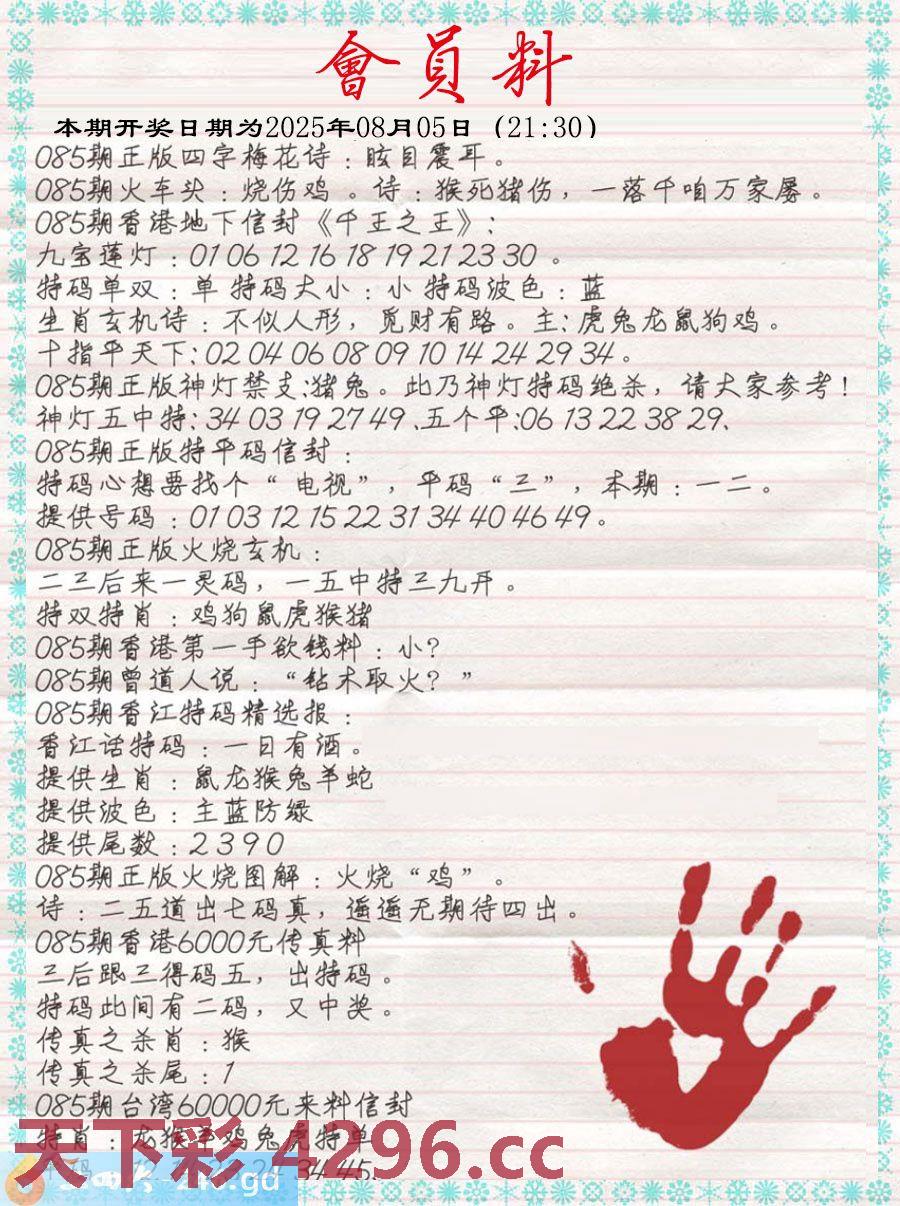 會員料
本期开奖日期为2025年08月05日（21:30）
085期正版四字梅花诗：眩目震耳。
085期火车头：烧伤鸡 。诗：猴死猪伤，一落千咱万家屡。
085期香港地下信封《千王之王》：
九宝莲灯：01 06 12 16 18 19 21 23 30 。
特码单双：单 特码大小：小 特码波色：蓝
生肖玄机诗：不似人形，觅财有路。主：虎兔龙鼠狗鸡。
十指平天下：02 04 06 08 09 10 14 24 29 34。
085期正版神灯禁支：猪兔。此乃神灯特码绝杀，请大家参考！
神灯五中特：34 03 19 27 49 、五个平：06 13 22 38 29、
085期正版特平码信封：
特码心想要找个“ 电视”，平码“三”，本期：一二。
提供号码：01 03 12 15 22 31 34 40 46 49。
085期正版火烧玄机：
二三后来一灵码，一五中特三九开。
特双特肖：鸡狗鼠虎猴猪
085期香港第一手欲钱料：小？
085期曾道人说：“钻木取火？”
085期香江特码精选报：
香江话特码：一日有酒。
提供生肖：鼠龙猴兔羊蛇
提供波色：主蓝防绿
提供尾数：2 3 9 0
085期正版火烧图解：火烧“鸡”。
诗：二五道出七码真，遥遥无期待四出。
085期香港6000元传真料
三后跟三得码五，出特码。
特码此间有二码，又中奖。
传真之杀肖：猴
传真之杀尾：1
085期台湾60000元来料信封
特肖：龙猴羊鸡兔虎特单
天下彩 4296.cc
34 45、